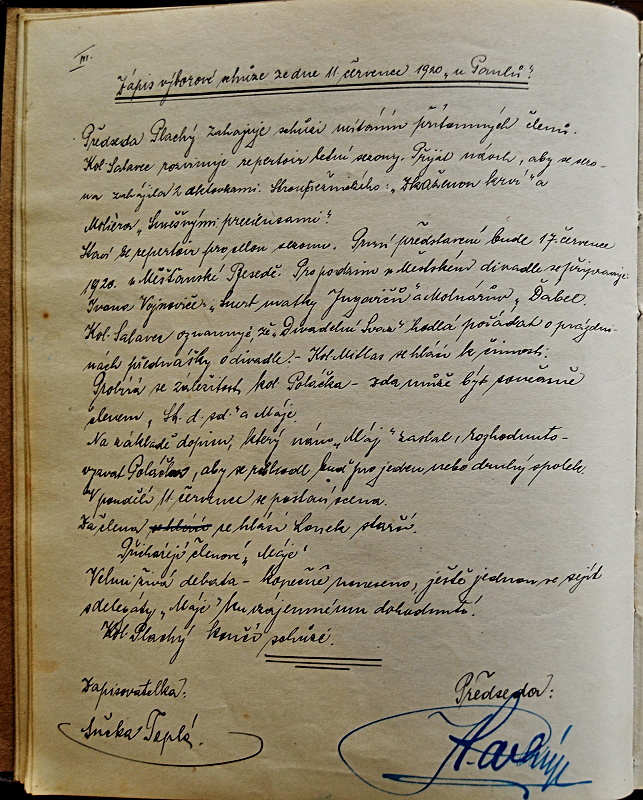 III.
Zápis výborové schůze ze dne 11. července 1920 „u Pavlů".
Předseda Plachý zahajuje schůzi vítáním přítomných členů.
Kol. Salavec rozvinuje repertoir letní sezony. Přijat návrh, aby se sezo-
na zahájila 2 aktovkami. Stroupežnického: „Zkaženou krví" a
Molièra „Směšnými preciesami".
Staví se repertoir pro celou sezonu. První představení bude 17. července
1920. v Měšťanské Besedě. Pro podzim v Městském divadle se připravuje:
Ivana Vojnoviče: „Smrt matky Jugovićů" a Molnárův „Ďábel.
Kol. Salavec oznamuje, že „Divadelní Svaz" hodlá pořádat o prázdni-
nách přednášky o divadle. - Kol. Mitlas se hlásí k činnosti.
Probírá se záležitost kol. Poláčka - zda může být současně
členem „Sk. d. sd." a Máje.
Na základě dopisu, který nám „Máj" zaslal, rozhodnuto-
vyzvat Poláčka, aby se rozhodl buď pro jeden nebo druhý spolek.
V pondělí 11. července se postaví scena.
Za člena se hlásí Honek starší.
Přicházejí členové „Máje"
Velmi živá debata - konečně usneseno, ještě jednou se sejít
s delegáty „Máje" ku vzájemnému dohodnutí.
Kol. Plachý končí schůzi.
Zapisovatelka:
Předseda:
Ančka Teplá.
Plachý